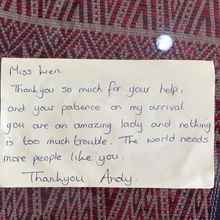 Miss Wen.
Thankyou so much for your help,
and your patience on my arrival
you are an amazing lady and nothing
is too much trouble. The world needs
more people like you.
Thankyou Andy.